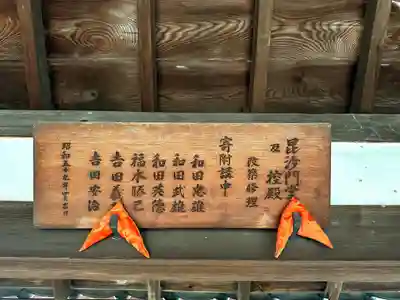 毘沙門堂
及 控殿
改築修理
寄附講中
和田忠雄
和田武雄
和田英徳
福水勝己
吉田義
吉田孝治
昭和五十九年四月吉日